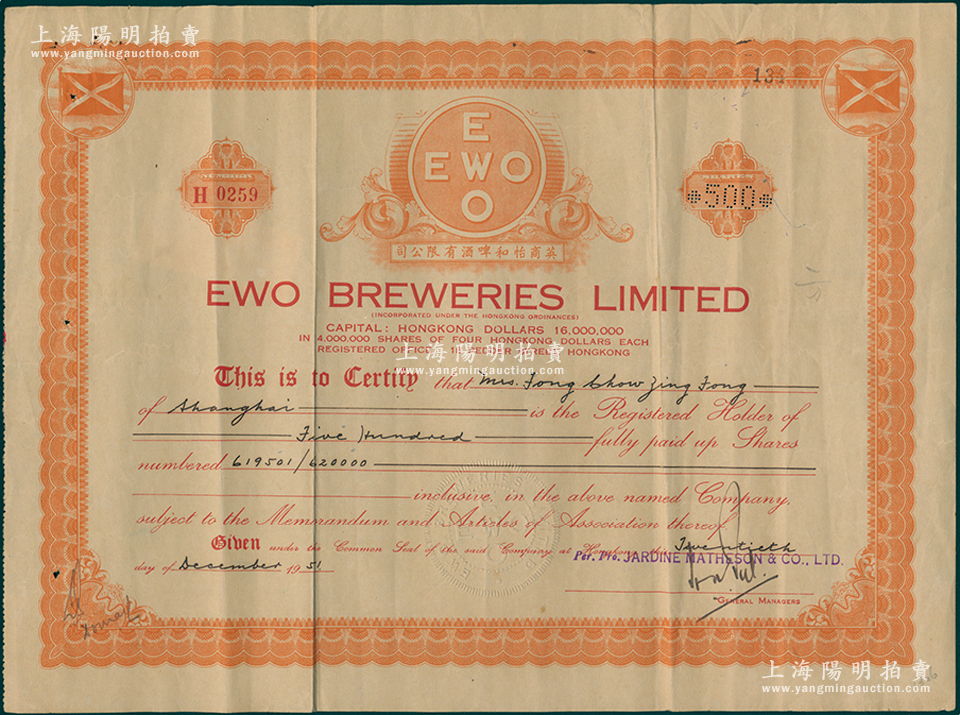 上海陽明拍賣
www.yangmingauction.com
E
EWO
O
H 0259
*500*
英商怡和啤酒有限公司
EWO BREWERIES LIMITED
(INCORPORATED UNDER THE HONGKONG ORDINANCES)
CAPITAL: HONGKONG DOLLARS 16,000,000
IN 4,000,000 SHARES OF FOUR HONGKONG DOLLARS EACH
REGISTERED OFFICE, HONGKONG
上海陽明拍賣
www.yangmingauction.com
This is to Certify that Mrs. Fong Chow Zing Fong
of Shanghai is the Registered Holder of
Five Hundred fully paid up Shares
numbered 619501/620000
inclusive, in the above named Company,
subject to the Memorandum and Articles of Association thereof.
Given under the Common Seal of the said Company at Twentieth
day of December 1951
Per. Pro. JARDINE MATHESON & CO., LTD.
GENERAL MANAGERS
上海陽明拍賣
www.yangmingauction.com